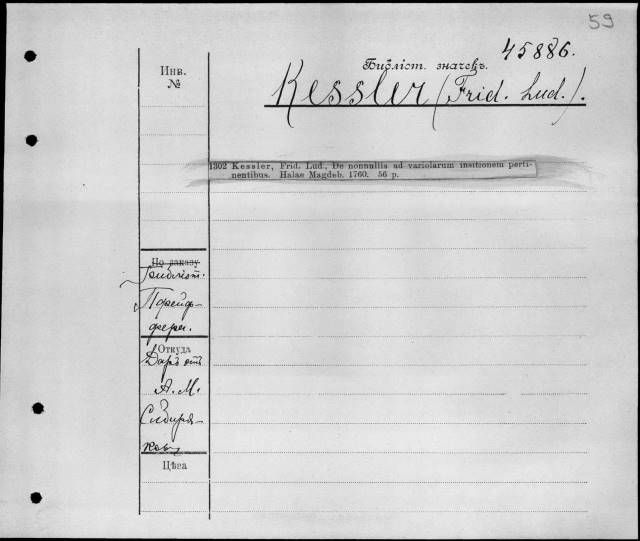 59
45886.
Инв.
№
Библіот. значекъ.
Kessler (Frid. Lud.).
1302 Kessler, Frid. Lud., De nonnullis ad variolarum insitionem perti-
nentibus. Halae Magdeb. 1760. 56 p.
По заказу
Библіот.
Пфейф-
фера.
Откуда
Даръ отъ
А. М.
Сибиря-
кова
Цѣна